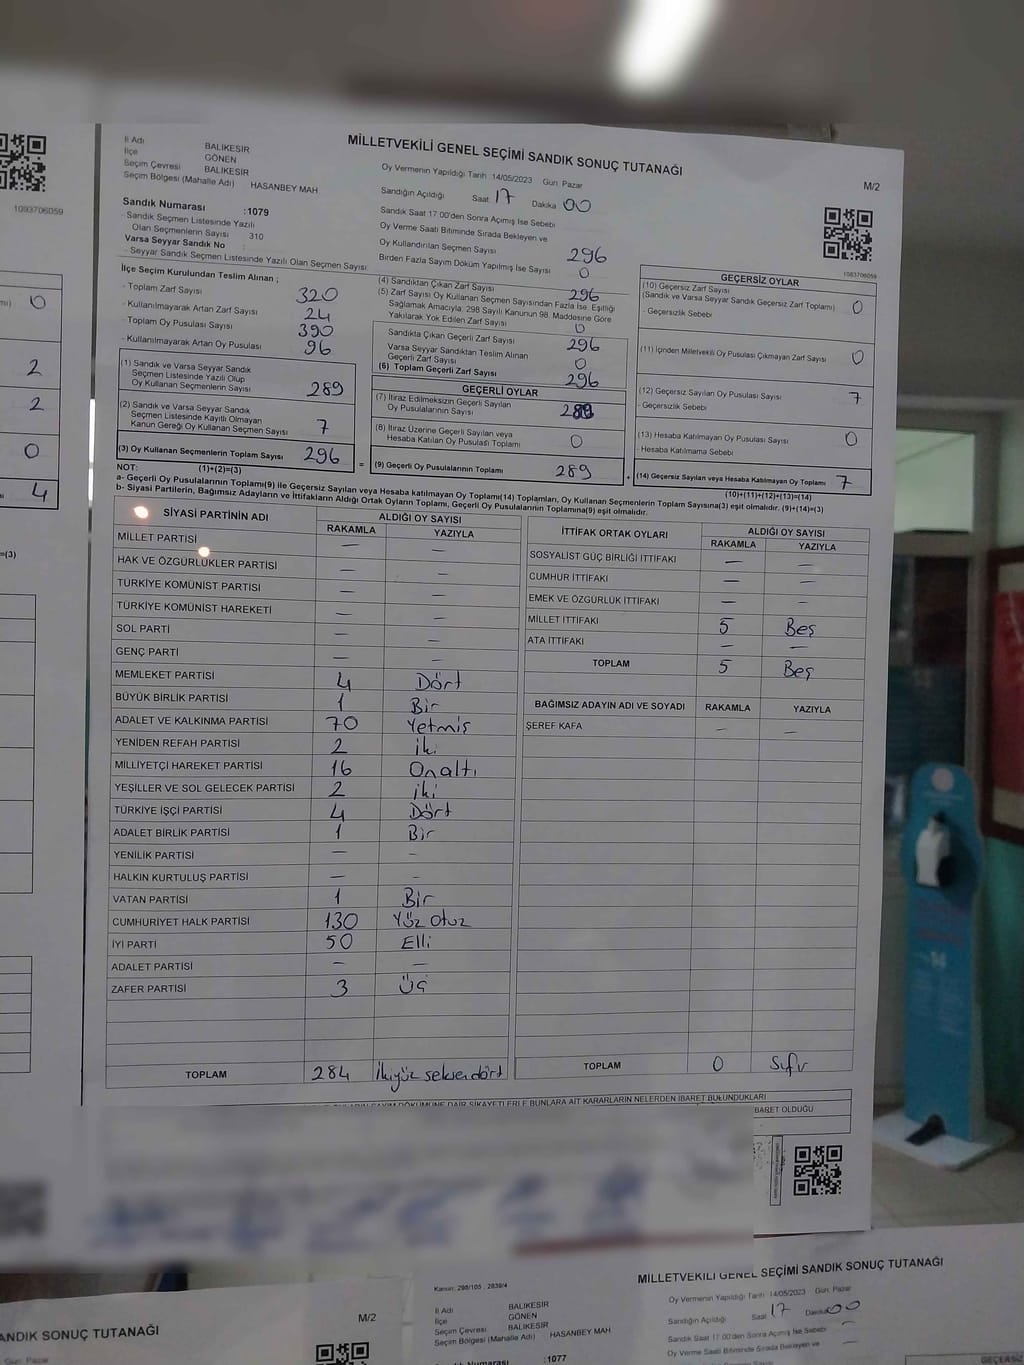 MİLLETVEKİLİ GENEL SEÇİMİ SANDIK SONUÇ TUTANAĞI
M/2
İl Adı BALIKESİR
İlçe GÖNEN
Seçim Çevresi BALIKESİR
Seçim Bölgesi (Mahalle Adı) HASANBEY MAH
Oy Vermenin Yapıldığı Tarih 14/05/2023 Gün Pazar
Sandığın Açıldığı Saat 17 Dakika 00
Sandık Saat 17 00'den Sonra Açımış İse Sebebi
Oy Verme Saati Bitiminde Sırada Bekleyen ve
Oy Kullandırılan Seçmen Sayısı 296
Birden Fazla Sayım Döküm Yapılmış İse Sayısı 0
1093706059
1093706059
Sandık Numarası :1079
- Sandık Seçmen Listesinde Yazılı
Olan Seçmenlerin Sayısı 310
Varsa Seyyar Sandık No :
- Seyyar Sandık Seçmen Listesinde Yazılı Olan Seçmen Sayısı
İlçe Seçim Kurulundan Teslim Alınan ;
- Toplam Zarf Sayısı 320
- Kullanılmayarak Artan Zarf Sayısı 24
- Toplam Oy Pusulası Sayısı 390
- Kullanılmayarak Artan Oy Pusulası 96
(1) Sandık ve Varsa Seyyar Sandık
Seçmen Listesinde Yazılı Olup
Oy Kullanan Seçmenlerin Sayısı 289
(2) Sandık ve Varsa Seyyar Sandık
Seçmen Listesinde Kayıtlı Olmayan
Kanun Gereği Oy Kullanan Seçmen Sayısı 7
(3) Oy Kullanan Seçmenlerin Toplam Sayısı 296
(4) Sandıktan Çıkan Zarf Sayısı 296
(5) Zarf Sayısı Oy Kullanan Seçmen Sayısından Fazla İse, Eşitliği
Sağlamak Amacıyla, 298 Sayılı Kanunun 98. Maddesine Göre
Yakılarak Yok Edilen Zarf Sayısı 0
Sandıkta Çıkan Geçerli Zarf Sayısı 296
Varsa Seyyar Sandıktan Teslim Alınan
Geçerli Zarf Sayısı 0
(6) Toplam Geçerli Zarf Sayısı 296
GEÇERLİ OYLAR
(7) İtiraz Edilmeksizin Geçerli Sayılan
Oy Pusulalarının Sayısı 289
(8) İtiraz Üzerine Geçerli Sayılan veya
Hesaba Katılan Oy Pusulası Toplamı 0
= (9) Geçerli Oy Pusulalarının Toplamı 289
GEÇERSİZ OYLAR
(10) Geçersiz Zarf Sayısı
(Sandık ve Varsa Seyyar Sandık Geçersiz Zarf Toplamı) 0
- Geçersizlik Sebebi
(11) İçinden Milletvekili Oy Pusulası Çıkmayan Zarf Sayısı 0
(12) Geçersiz Sayılan Oy Pusulası Sayısı 7
- Geçersizlik Sebebi
(13) Hesaba Katılmayan Oy Pusulası Sayısı 0
- Hesaba Katılmama Sebebi
+ (14) Geçersiz Sayılan veya Hesaba Katılmayan Oy Toplamı 7
NOT: (1)+(2)=(3)
(10)+(11)+(12)+(13)=(14)
a- Geçerli Oy Pusulalarının Toplamı(9) ile Geçersiz Sayılan veya Hesaba katılmayan Oy Toplamı(14) Toplamları, Oy Kullanan Seçmenlerin Toplam Sayısına(3) eşit olmalıdır. (9)+(14)=(3)
b- Siyasi Partilerin, Bağımsız Adayların ve İttifakların Aldığı Ortak Oyların Toplamı, Geçerli Oy Pusulalarının Toplamına(9) eşit olmalıdır.
SİYASİ PARTİNİN ADI ALDIĞI OY SAYISI
RAKAMLA YAZIYLA
MİLLET PARTİSİ — —
HAK VE ÖZGÜRLÜKLER PARTİSİ — —
TÜRKİYE KOMÜNİST PARTİSİ — —
TÜRKİYE KOMÜNİST HAREKETİ — —
SOL PARTİ — —
GENÇ PARTİ — —
MEMLEKET PARTİSİ 4 Dört
BÜYÜK BİRLİK PARTİSİ 1 Bir
ADALET VE KALKINMA PARTİSİ 70 Yetmiş
YENİDEN REFAH PARTİSİ 2 iki
MİLLİYETÇİ HAREKET PARTİSİ 16 Onaltı
YEŞİLLER VE SOL GELECEK PARTİSİ 2 iki
TÜRKİYE İŞÇİ PARTİSİ 4 Dört
ADALET BİRLİK PARTİSİ 1 Bir
YENİLİK PARTİSİ — -
HALKIN KURTULUŞ PARTİSİ — -
VATAN PARTİSİ 1 Bir
CUMHURİYET HALK PARTİSİ 130 Yüz Otuz
İYİ PARTİ 50 Elli
ADALET PARTİSİ — —
ZAFER PARTİSİ 3 Üç
TOPLAM 284 İkiyüz seksendört
İTTİFAK ORTAK OYLARI ALDIĞI OY SAYISI
RAKAMLA YAZIYLA
SOSYALİST GÜÇ BİRLİĞİ İTTİFAKI — —
CUMHUR İTTİFAKI — —
EMEK VE ÖZGÜRLÜK İTTİFAKI — —
MİLLET İTTİFAKI 5 Beş
ATA İTTİFAKI — —
TOPLAM 5 Beş
BAĞIMSIZ ADAYIN ADI VE SOYADI RAKAMLA YAZIYLA
ŞEREF KAFA — —
TOPLAM 0 Sıfır
DÖKÜMÜNE DAİR ŞİKAYETLERLE BUNLARA AİT KARARLARIN NELERDEN İBARET BULUNDUKLARI
BARET OLDUĞU
0
2
2
0
4
=(3)
ANDIK SONUÇ TUTANAĞI
M/2
Gün: Pazar
Kanun: 298/105 , 2839/4
İl Adı BALIKESİR
İlçe GÖNEN
Seçim Çevresi BALIKESİR
Seçim Bölgesi (Mahalle Adı) HASANBEY MAH
:1077
MİLLETVEKİLİ GENEL SEÇİMİ SANDIK SONUÇ TUTANAĞI
Oy Vermenin Yapıldığı Tarih 14/05/2023 Gün: Pazar
Sandığın Açıldığı Saat 17 Dakika 00
Sandık Saat 17 00'den Sonra Açımış İse Sebebi
Oy Verme Saati Bitiminde Sırada Bekleyen ve
GEÇERSİZ